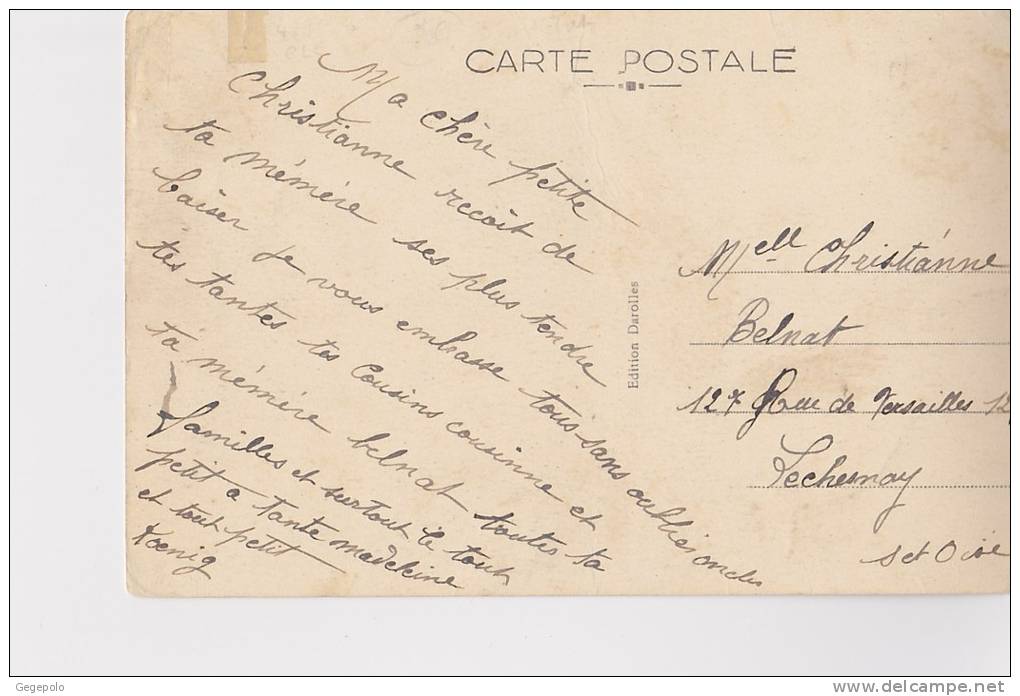 CARTE POSTALE
Ma chère petite
Christianne recoit de
ta mémère ses plus tendre
baiser je vous embrasse tous sans oublier oncles
tes tantes tes cousins cousinne et
ta mémère belnat toutes ta
familles et surtout le tout
petit a tante madeleine
et tout petit
Kœnig
Edition Darolles
Melle Christianne
Belnat
127 Rue de Versailles 12
Lechesnay
S et Oise
Gegepolo
www.delcampe.net